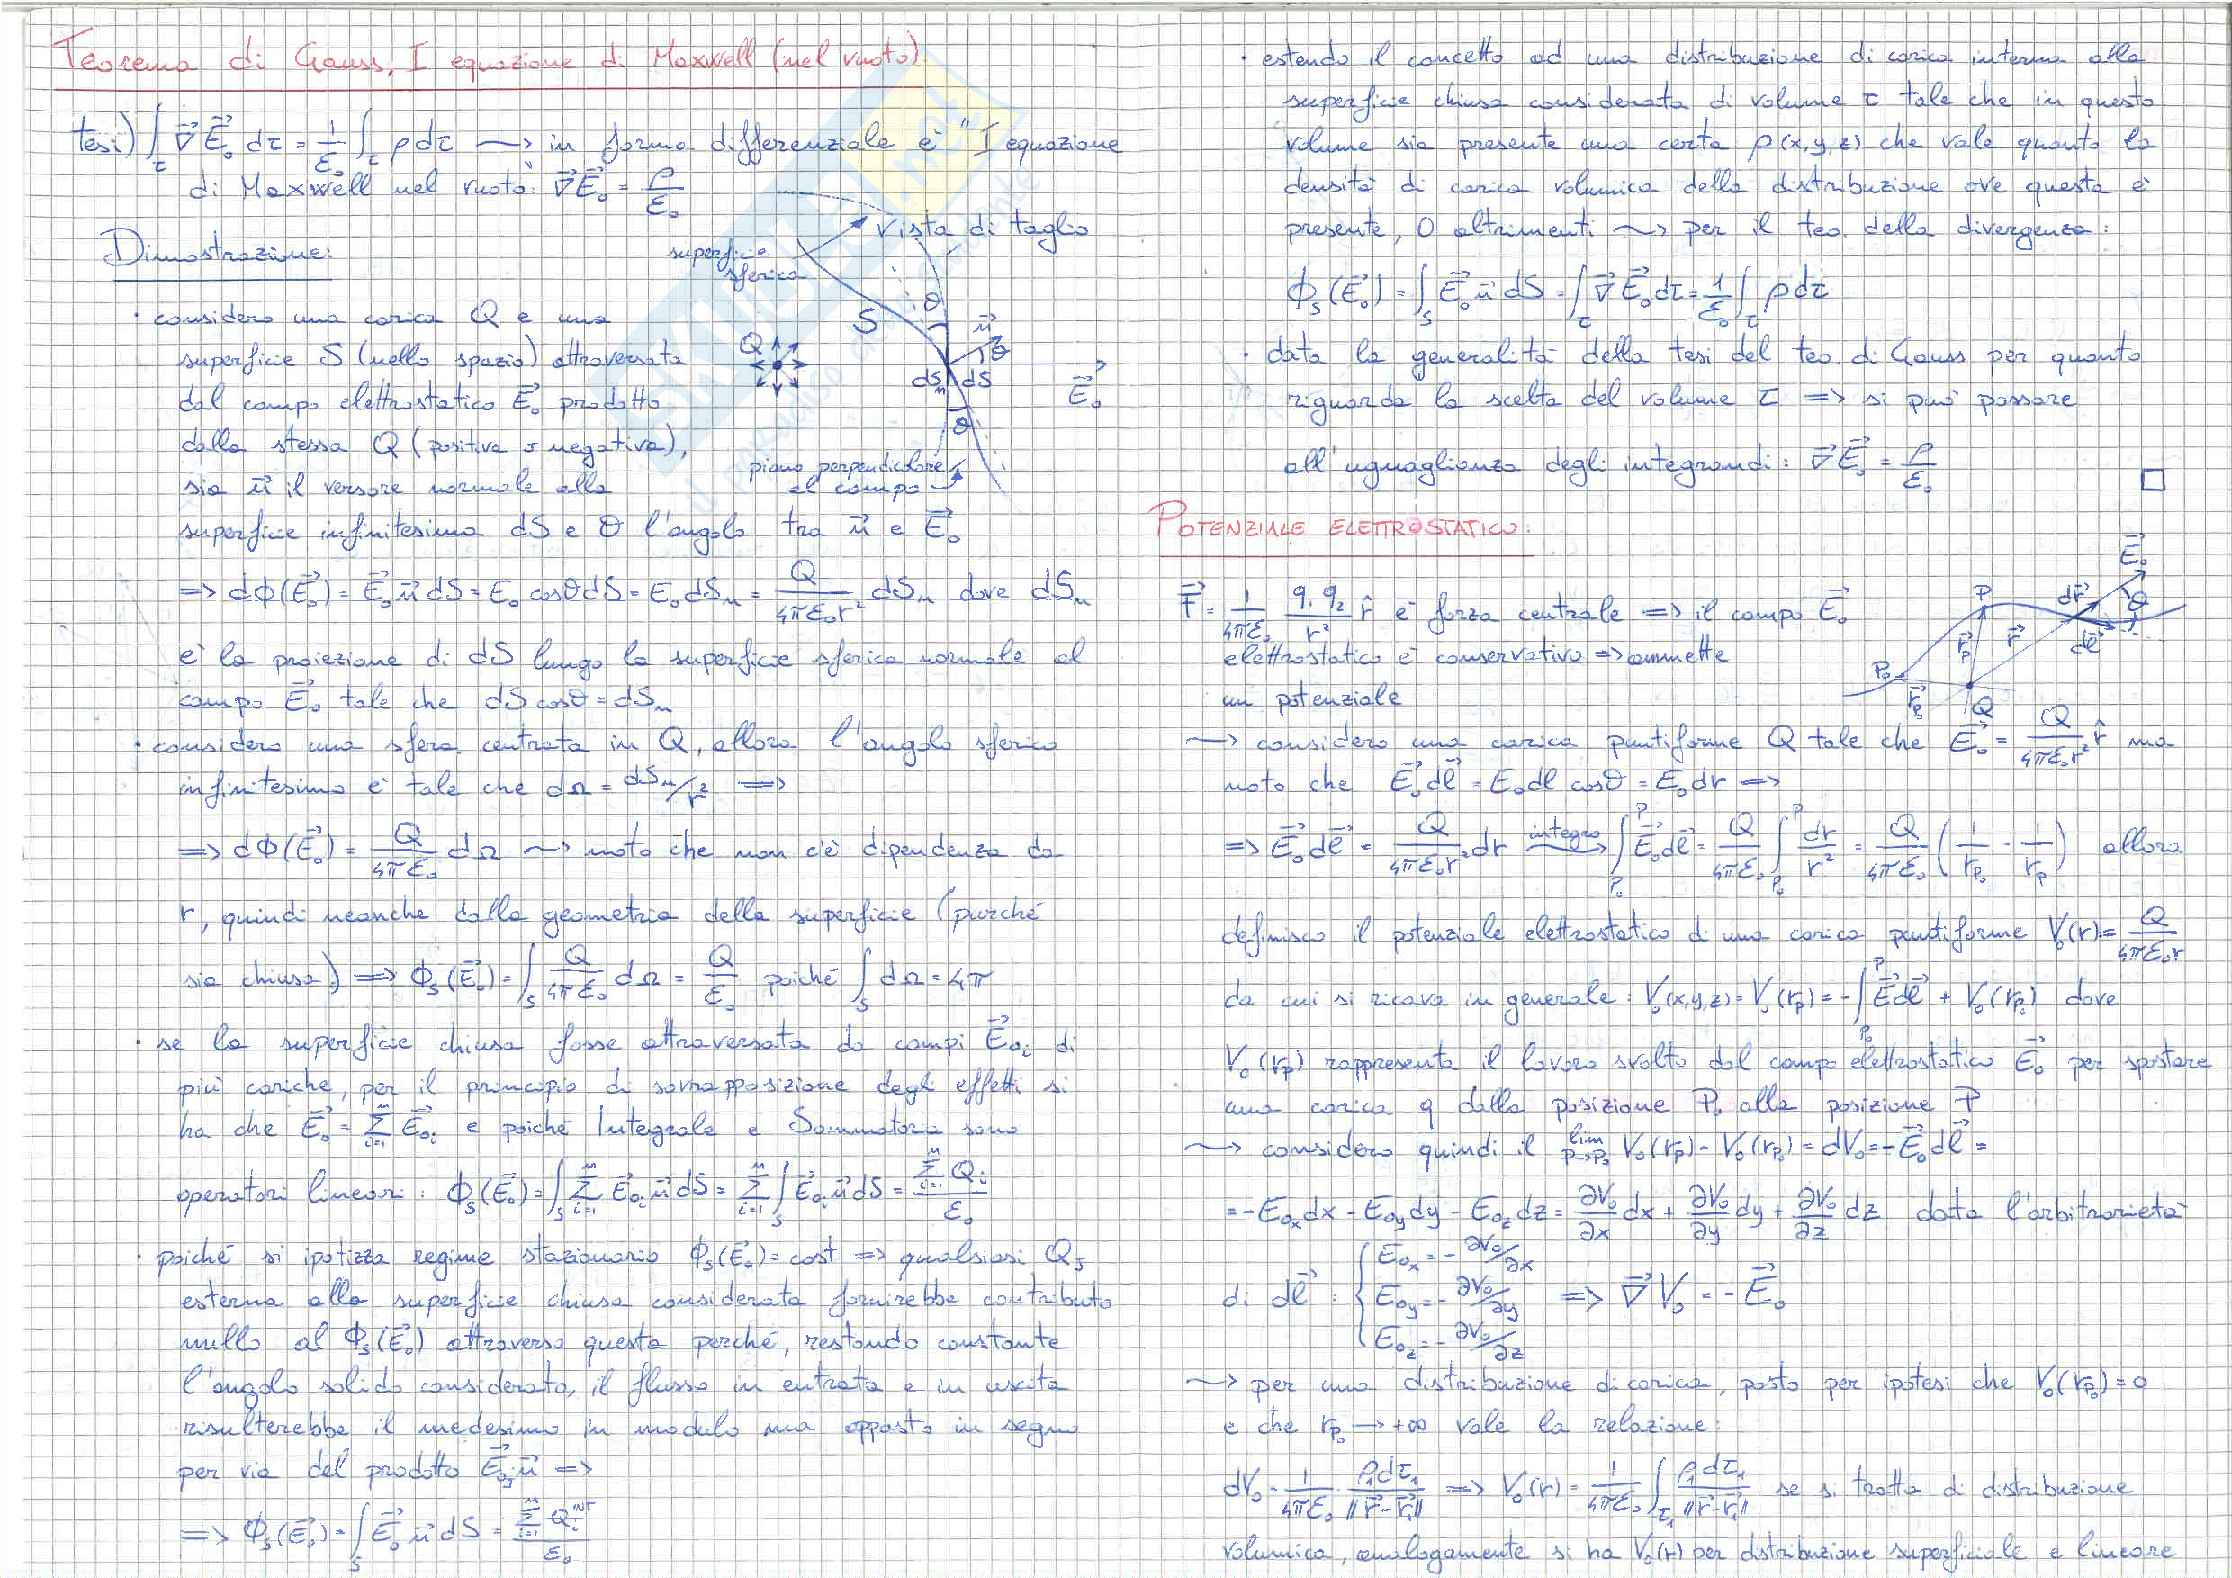 Teorema di Gauss, I equazione di Maxwell (nel vuoto)
tesi) ∫_τ ∇⃗ E⃗₀ dτ = 1/ε₀ ∫_τ ρ dτ ⟿ in forma differenziale è "I equazione
di Maxwell nel vuoto": ∇⃗ E⃗₀ = ρ/ε₀
Dimostrazione:
superficie sferica
vista di taglio
S
θ
n⃗
θ
Q
dSₙ dS
E⃗₀
θ
piano perpendicolare
al campo
· considero una carica Q e una
superficie S (nello spazio) attraversata
dal campo elettrostatico E⃗₀ prodotto
dalla stessa Q (positiva o negativa),
sia n⃗ il versore normale alla
superficie infinitesima dS e θ l'angolo tra n⃗ e E⃗₀
=> dϕ(E⃗₀) = E⃗₀ n⃗ dS = E₀ cosθ dS = E₀ dSₙ = Q/4πε₀r² dSₙ dove dSₙ
è la proiezione di dS lungo la superficie sferica normale al
campo E⃗₀ tale che dS cosθ = dSₙ
· considero una sfera centrata in Q, allora l'angolo sferico
infinitesimo è tale che dΩ = dSₙ/r² =>
=> dϕ(E⃗₀) = Q/4πε₀ dΩ ⟿ noto che non c'è dipendenza da
r, quindi neanche dalla geometria della superficie (purché
sia chiusa) => ϕₛ(E⃗₀) = ∫_S Q/4πε₀ dΩ = Q/ε₀ poiché ∫_S dΩ = 4π
· se la superficie chiusa fosse attraversata da campi E⃗₀ᵢ di
più cariche, per il principio di sovrapposizione degli effetti si
ha che E⃗₀ = Σⁿᵢ₌₁ E⃗₀ᵢ e poiché Integrale e Sommatoria sono
operatori lineari: ϕₛ(E⃗₀) = ∫_S Σⁿᵢ₌₁ E⃗₀ᵢ n⃗ dS = Σⁿᵢ₌₁ ∫_S E⃗₀ᵢ n⃗ dS = Σⁿᵢ₌₁ Qᵢ / ε₀
· poiché si ipotizza regime stazionario ϕₛ(E⃗₀) = cost => qualsiasi Qⱼ
esterna alla superficie chiusa considerata fornirebbe contributo
nullo al ϕₛ(E⃗₀) attraverso questa perché, restando constante
l'angolo solido considerato, il flusso in entrata e in uscita
risulterebbe il medesimo in modulo ma opposto in segno
per via del prodotto E⃗₀ⱼ n⃗ =>
=> ϕₛ(E⃗₀) = ∫_S E⃗₀ n⃗ dS = Σⁿᵢ₌₁ Qᵢᴵᴺᵀ / ε₀
· estendo il concetto ad una distribuzione di carica interna alla
superficie chiusa considerata di volume τ tale che in questo
volume sia presente una certa ρ(x,y,z) che vale quanto la
densità di carica volumica della distribuzione ove questa è
presente, 0 altrimenti ⟿ per il teo. della divergenza:
ϕₛ(E⃗₀) = ∫_S E⃗₀ n⃗ dS = ∫_τ ∇⃗ E⃗₀ dτ = 1/ε₀ ∫_τ ρ dτ
· data la generalità della tesi del teo. di Gauss per quanto
riguarda la scelta del volume τ => si può passare
all'uguaglianza degli integrandi: ∇⃗ E⃗₀ = ρ/ε₀ □
POTENZIALE ELETTROSTATICO:
E⃗₀
P dr⃗ θ
r⃗_P r⃗ dl⃗
P₀
r⃗_P₀ Q
F⃗ = 1/4πε₀ q₁q₂/r² r̂ è forza centrale => il campo E⃗₀
elettrostatico è conservativo => ammette
un potenziale
⟿ considero una carica puntiforme Q tale che E⃗₀ = Q/4πε₀r² r̂ ma
noto che E⃗₀dl⃗ = E₀dl cosθ = E₀dr =>
=> E⃗₀dl⃗ = Q/4πε₀r² dr integro ⟶ ∫_P₀^P E⃗₀dl⃗ = Q/4πε₀ ∫_P₀^P dr/r² = Q/4πε₀ (1/r_P₀ - 1/r_P) allora
definisco il potenziale elettrostatico di una carica puntiforme V₀(r) = Q/4πε₀r
da cui si ricava in generale: V₀(x,y,z) = V₀(r_P) = -∫_P₀^P E⃗dl⃗ + V₀(r_P₀) dove
V₀(r_P) rappresenta il lavoro svolto dal campo elettrostatico E⃗₀ per spostare
una carica q dalla posizione P₀ alla posizione P
⟿ considero quindi il lim_P→P₀ V₀(r_P) - V₀(r_P₀) = dV₀ = -E⃗₀dl⃗ =
= -E₀ₓdx - E₀ydy - E₀zdz = ∂V₀/∂x dx + ∂V₀/∂y dy + ∂V₀/∂z dz data l'arbitrarietà
di dl⃗: { E₀ₓ = -∂V₀/∂x
E₀y = -∂V₀/∂y => ∇⃗V₀ = -E⃗₀
E₀z = -∂V₀/∂z
⟿ per una distribuzione di carica, posto per ipotesi che V₀(r_P₀) = 0
e che r_P₀ → +∞ vale la relazione:
dV₀ = 1/4πε₀ · ρ₁dτ₁/‖r⃗-r⃗₁‖ => V₀(r) = 1/4πε₀ ∫_τ₁ ρ₁dτ₁/‖r⃗-r⃗₁‖ se si tratta di distribuzione
volumica, analogamente si ha V₀(r) per distribuzione superficiale e lineare